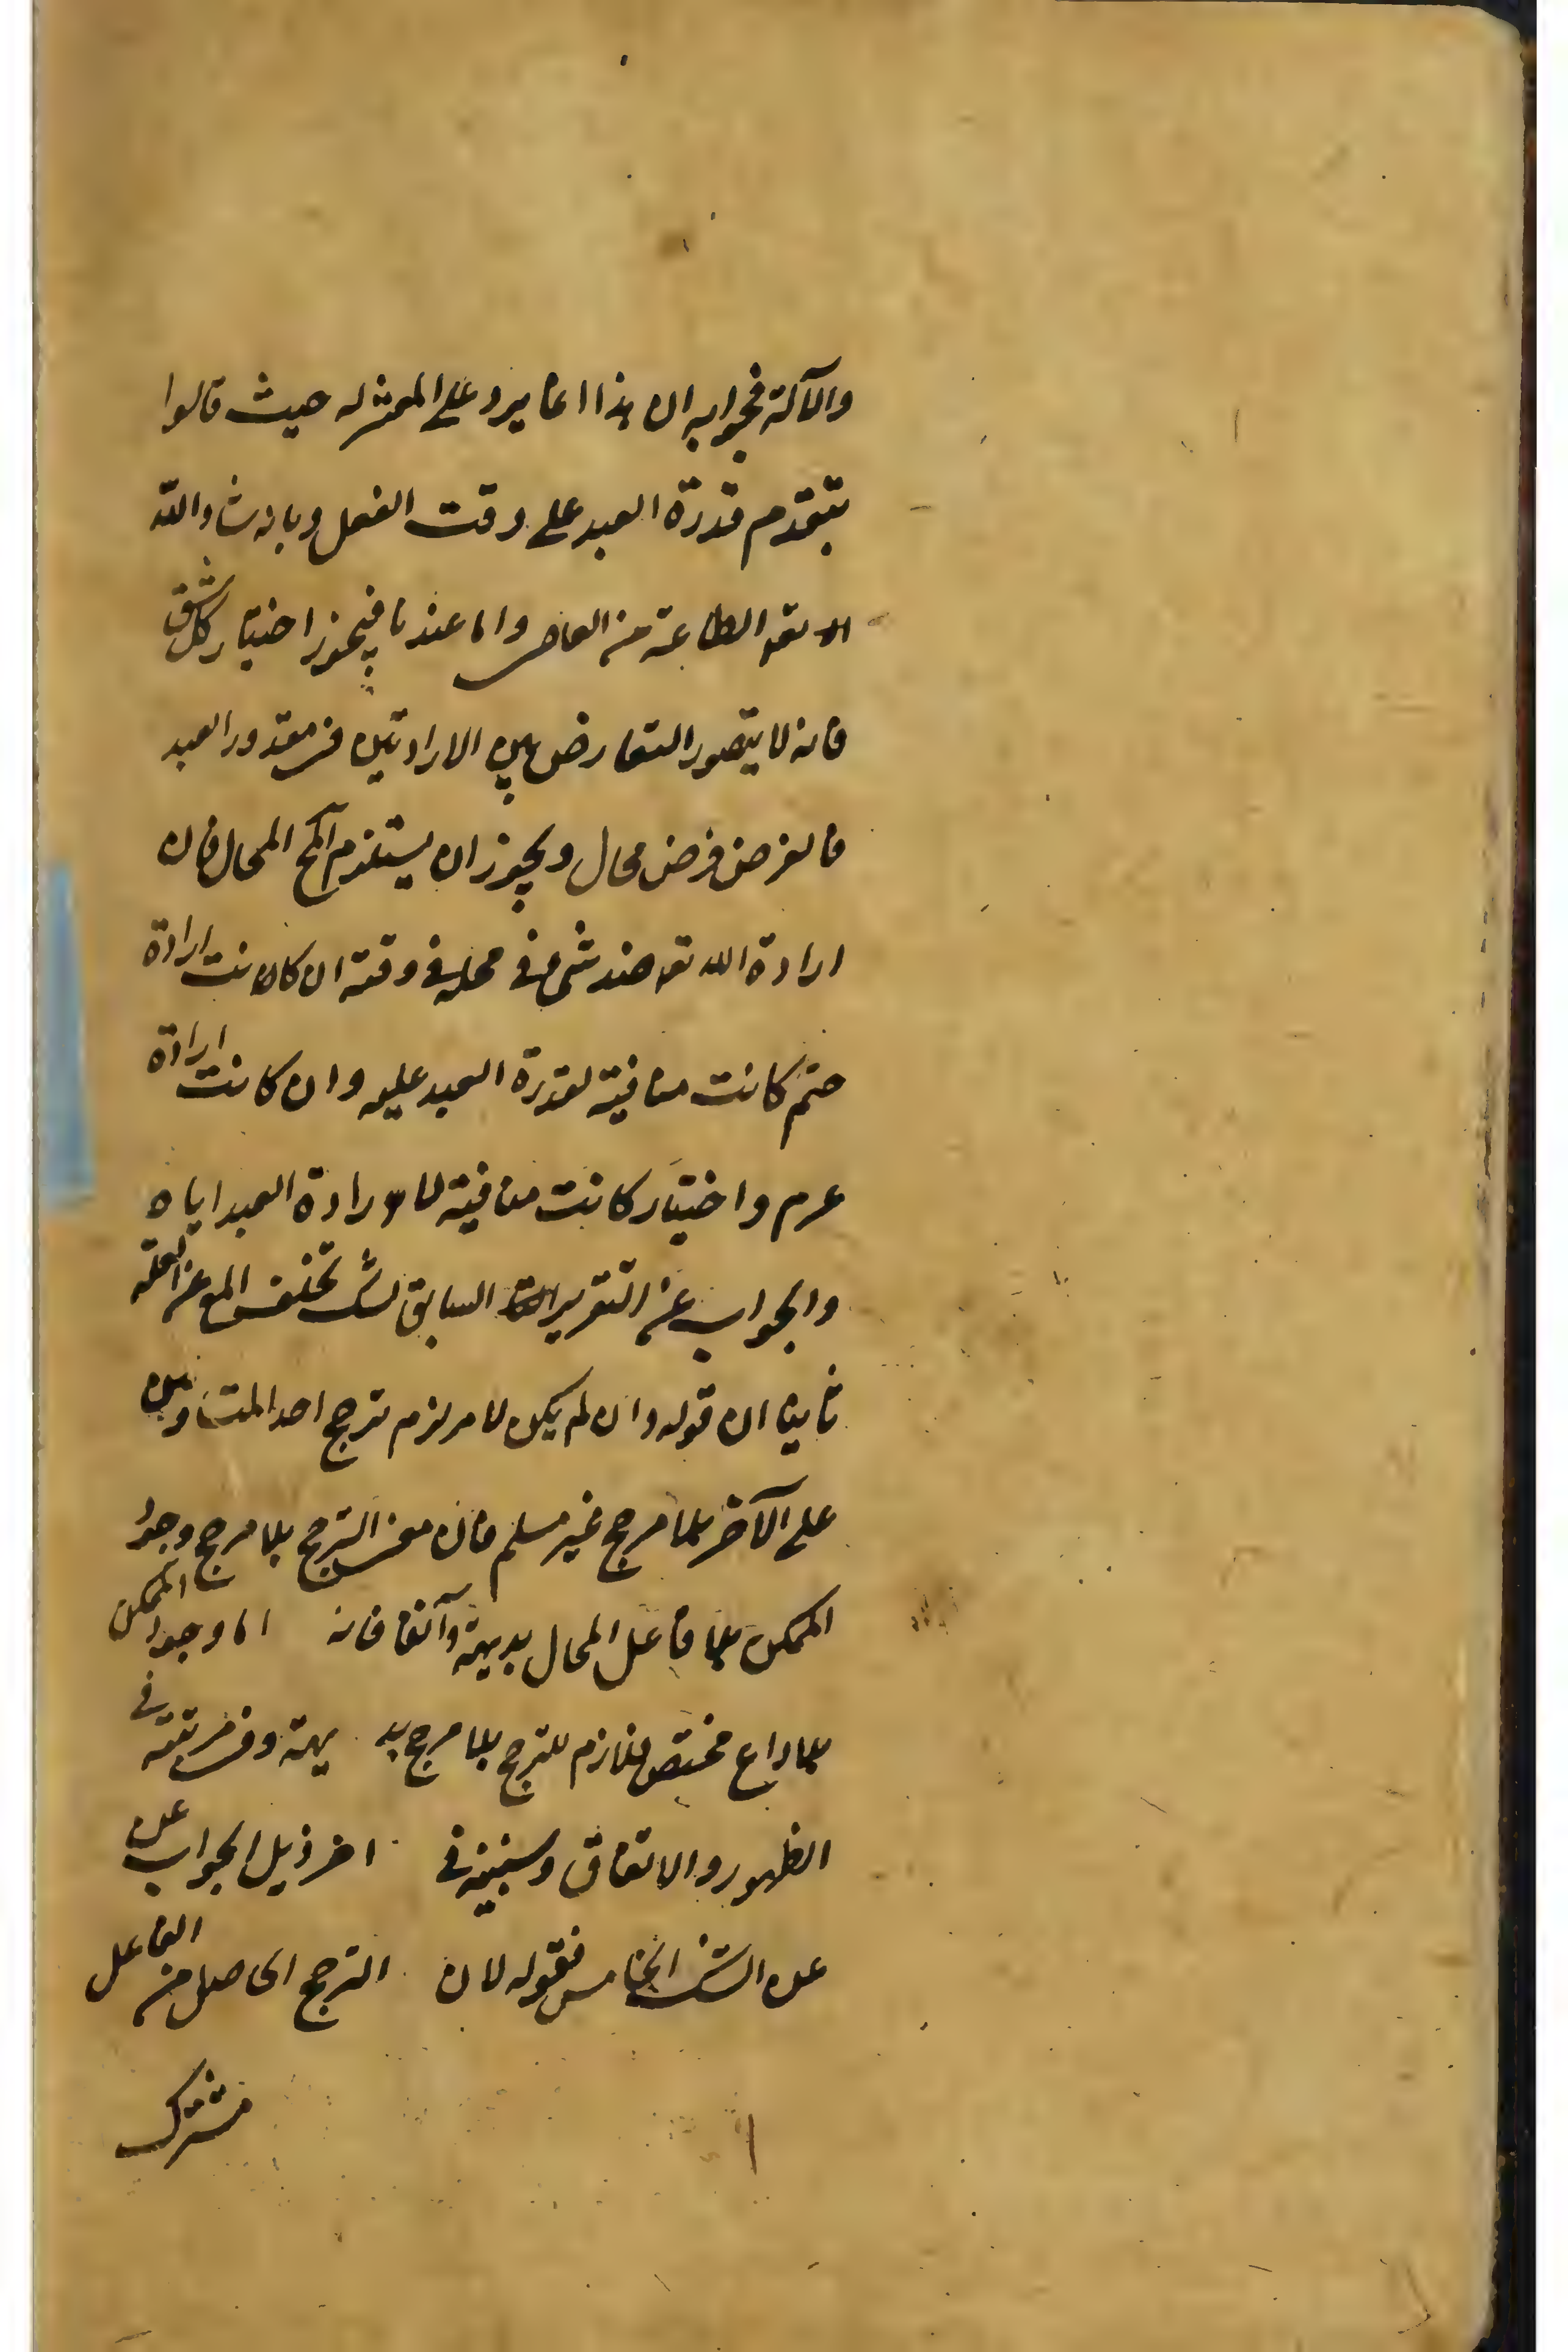 والآلة فجوابه ان هذا انما يرد على المعتزله حيث قالوا
بتقدم قدرة العبد على وقت الفعل وبانه شاء الله
تعه الطاعة من العاصى واما عندنا فيجوز اختيار كل شق
فانه لا يتصور التعارض بين الارادتين فى مقدور العبد
فالفرض فرض محال ويجوز ان يستلزم المحال فان
ارادة الله تعه ضد شىء فى محله فى وقته ان كانت ارادة
حتم كانت منافية لقدرة العبد عليه وان كانت ارادة
عزم واختيار كانت منافية لارادة العبد اياه
والجواب عن التقرير السابق تخلف المع عن العلة
ثانيا ان قوله وان لم يكن لامر لزم ترجح احد المتساويين
على الآخر بلا مرجح غير مسلم فان معنى الترجح بلا مرجح وجود
الممكن بلا فاعل المحال بديهة واتفاقا فانه اما وجود الممكن
بلا داع مختص ملازم للترجح بلا مرجح بديهة وفى مرتبته فى
الظهور والاتفاق وسنبينه فى اخر ذيل الجواب عن
عن الشك الخامس فقوله لان الترجح الحاصل من الفاعل
مشترك